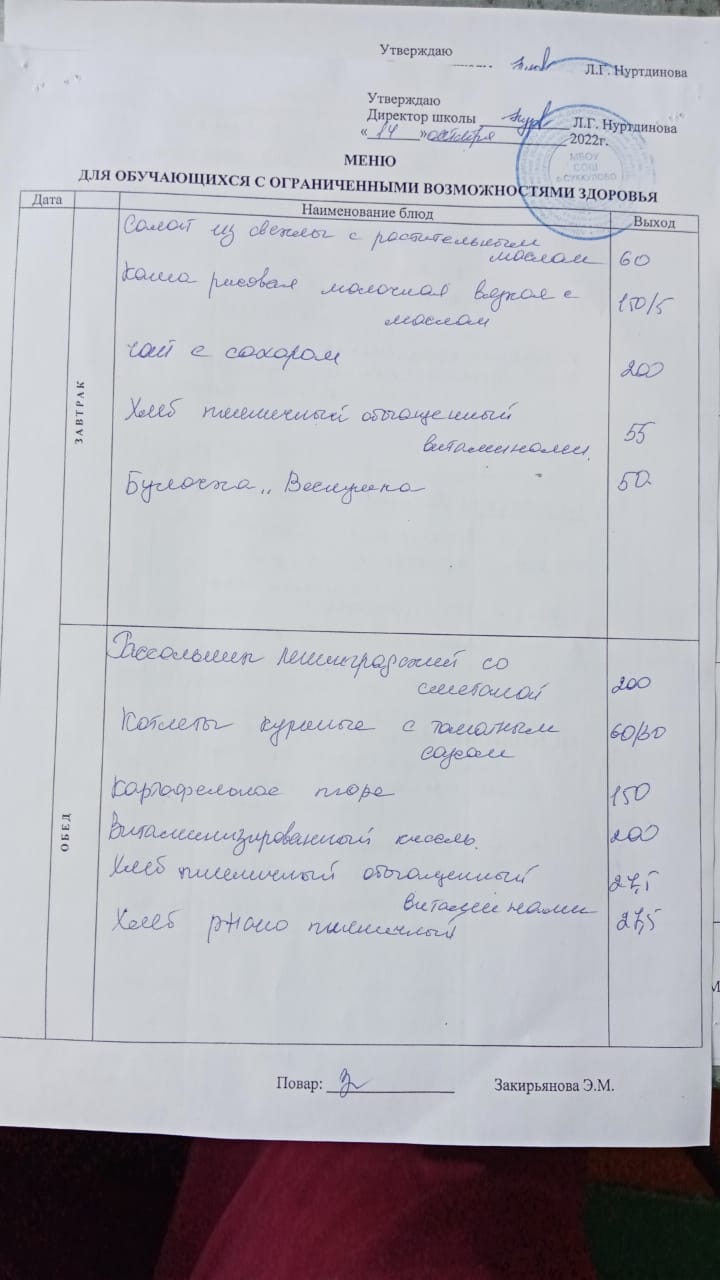 Утверждаю
Л.Г. Нуртдинова
Утверждаю
Директор школы Л.Г. Нуртдинова
« 14 » октября 2022г.
МБОУ
СОШ
с.СУККУЛОВО
МЕНЮ
ДЛЯ ОБУЧАЮЩИХСЯ С ОГРАНИЧЕННЫМИ ВОЗМОЖНОСТЯМИ ЗДОРОВЬЯ
Дата Наименование блюд Выход
ЗАВТРАК
Салат из свеклы с растительным
маслом 60
Каша рисовая молочная вязкая с 150/5
маслом
Чай с сахаром 200
Хлеб пшеничный обогащенный
витаминами. 55
Булочка „Веснушка 50
ОБЕД
Рассольник Ленинградский со
сметаной 200
Котлеты куриные с томатным 60/30
соусом
Картофельное пюре 150
Витаминизированный кисель. 200
Хлеб пшеничный обогащенный 27,5
витаминами
Хлеб ржано пшеничный 27,5
Повар: Закирьянова Э.М.